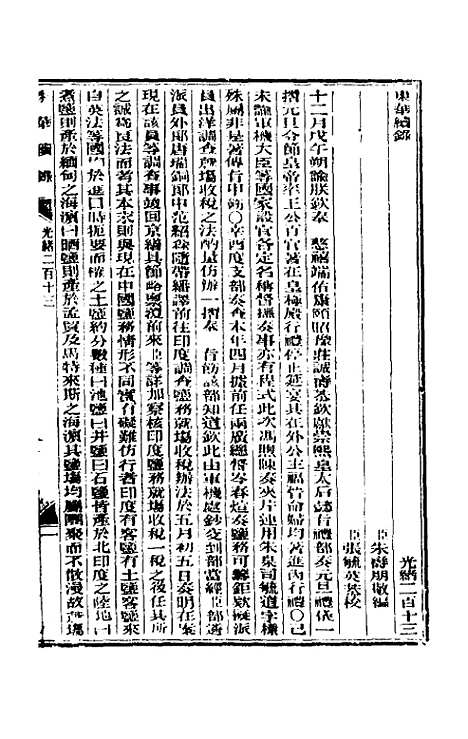 東華續錄
光緒二百十三
臣朱壽朋敬編
臣張毓英校
十二月戊午朔諭朕欽奉 慈禧端佑康頤昭豫莊誠壽恭欽獻崇熙皇太后懿旨禮部奏元旦禮儀一
摺元旦令節皇帝率王公百官著在皇極殿行禮停止筵宴其在外公主福晉命婦均著進內行禮○己
未諭軍機大臣等國家設官各定名稱督撫奏事亦有程式此次馮煦陳奏夾片連用朱臬司毓道字樣
殊屬非是著傳旨申飭○辛酉度支部奏查本年四月據前任兩廣總督岑春煊奏鹽務可興鉅款擬派
員出洋調查就場收稅之法酌量仿辦一摺奉 旨飭該部知道欽此由軍機處鈔交到部當經臣部遴
派員外郎唐瑞銅郎中范紹森隨帶繙譯前往印度調查鹽務就場收稅辦法於五月初五日奏明在案
現在該員等調查事竣回京繕具節略稟覆前來臣等詳加察核印度鹽務就場收稅一稅之後任其所
之誠為良法而考其本末則與現在中國鹽務情形不同實有礙難仿行者印度有客鹽有土鹽客鹽來
自英法等國均於進口時扼要而榷之土鹽約分數種曰池鹽曰井鹽曰石鹽皆產於北印度之陸地曰
煮鹽則產於緬甸之海濱曰曬鹽則產於孟買及馬特來斯之海濱其鹽場均屬團聚而不散漫故產場
東華續錄 光緒二百十三